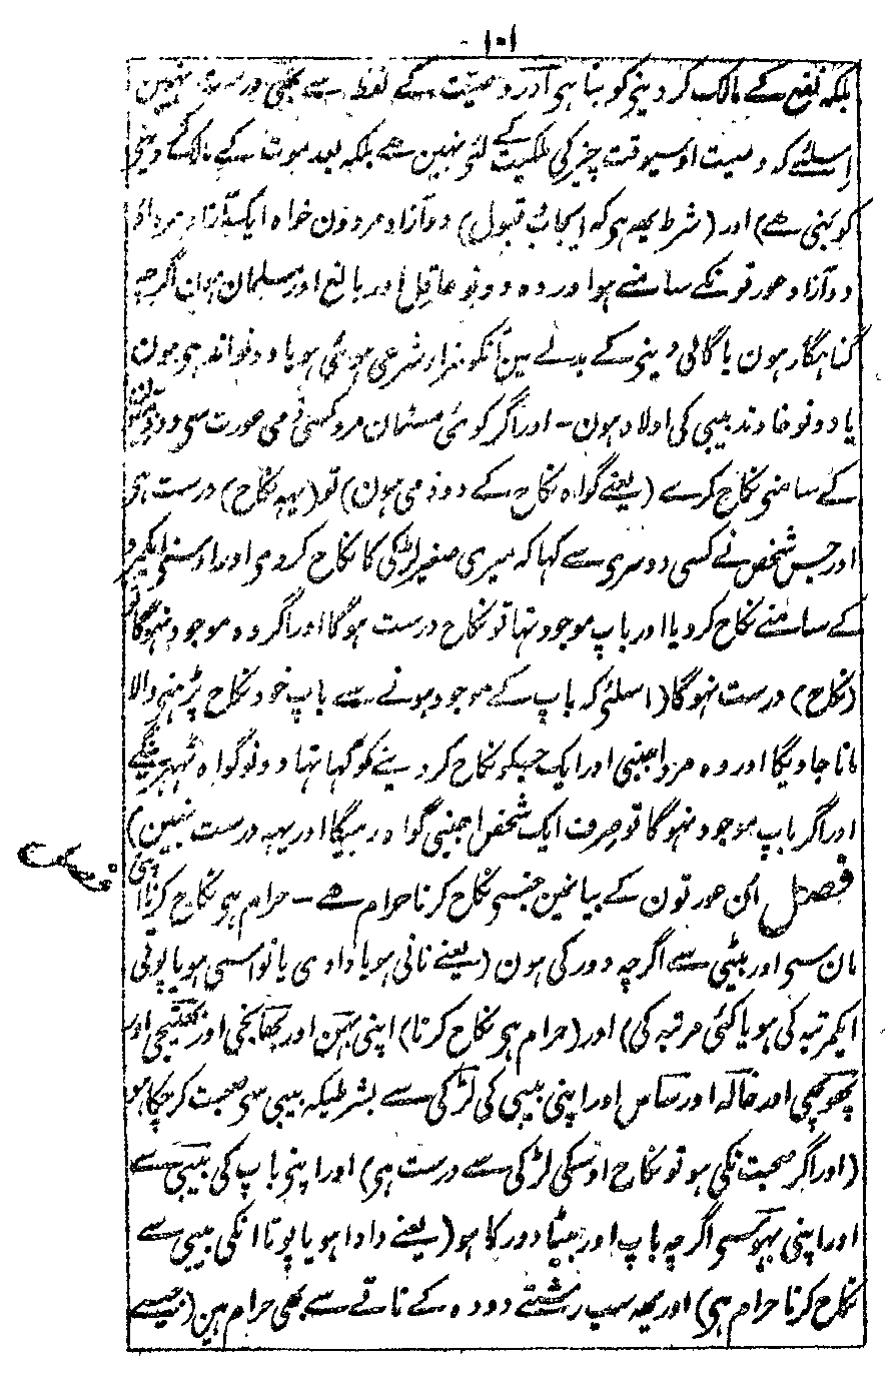 ۱۰۱
بلکہ نفع کے مالک کر دینے کو بنا ہی اور وصیت کے لفظ سے بھی درست نہین
اسلئے کہ وصیت اوسیوقت چیز کی ملکیت کے لئے نہین ہے بلکہ بعد موت کے مالک کے دینے
کو بنی ہے) اور (شرط یہہ ہی کہ ایجاب قبول) دو آزاد مردون خواہ ایک آزاد مرد اور
دو آزاد عورتونکے سامنے ہو اور وہ دونو عاقل اور بالغ اور مسلمان ہون اگرچہ
گناہگار ہون یا گالی دینے کے بدلے مین انکو سزا شرعی ہوئی ہو یا دونو اندہی ہون
یا دونو خاوند بیبی کی اولاد ہون - اور اگر کوئی مسلمان مرد کسی ذمی عورت سی دو ذمیون
کے سامنے نکاح کرے (یعنے گواہ نکاح کے دو ذمی ہون) تو (یہہ نکاح) درست ہی
اور جس شخص نے کسی دوسری سے کہا کہ میری صغیر لڑکی کا نکاح کر دی اور اوسنی ایکمرد
کے سامنے نکاح کر دیا اور باپ موجود تہا تو نکاح درست ہوگا اور اگر وہ موجود نہوگا تو
(نکاح) درست نہوگا (اسلئے کہ باپ کے موجود ہونے سے باپ خود نکاح پڑہنے والا
مانا جاویگا اور وہ مرد اجنبی اور ایک جسکو نکاح کر دینے کو کہا تہا دونو گواہ ٹہہرینگے
اور اگر باپ موجود نہوگا تو صرف ایک شخص اجنبی گواہ رہیگا اور یہہ درست نہین)
فصل اُن عورتون کے بیانمین جنسی نکاح کرنا حرام ہے - حرام ہی نکاح کرنا اپنی
مان سی اور بیٹی سے اگرچہ دور کی ہون (یعنے نانی ہو یا دادی یا نواسی ہو یا پوتی
ایکمرتبہ کی ہو یا کئی مرتبہ کی) اور (حرام ہی نکاح کرنا) اپنی بہن اور بھانجی اور بھتیجی اور
پھوپھی اور خالہ اور ساس اور اپنی بیبی کی لڑکی سے بشرطیکہ بیبی سی صحبت کر چکا ہو
(اور اگر صحبت نکی ہو تو نکاح اوسکی لڑکی سے درست ہی) اور اپنے باپ کی بیبی سے
اور اپنی بہو سی اگرچہ باپ اور بیٹا دور کا ہو (یعنے دادا ہو یا پوتا انکی بیبی سے
نکاح کرنا حرام ہی) اور یہہ سب رشتے دودہ کے ناتے سے بھی حرام ہین (جیسے